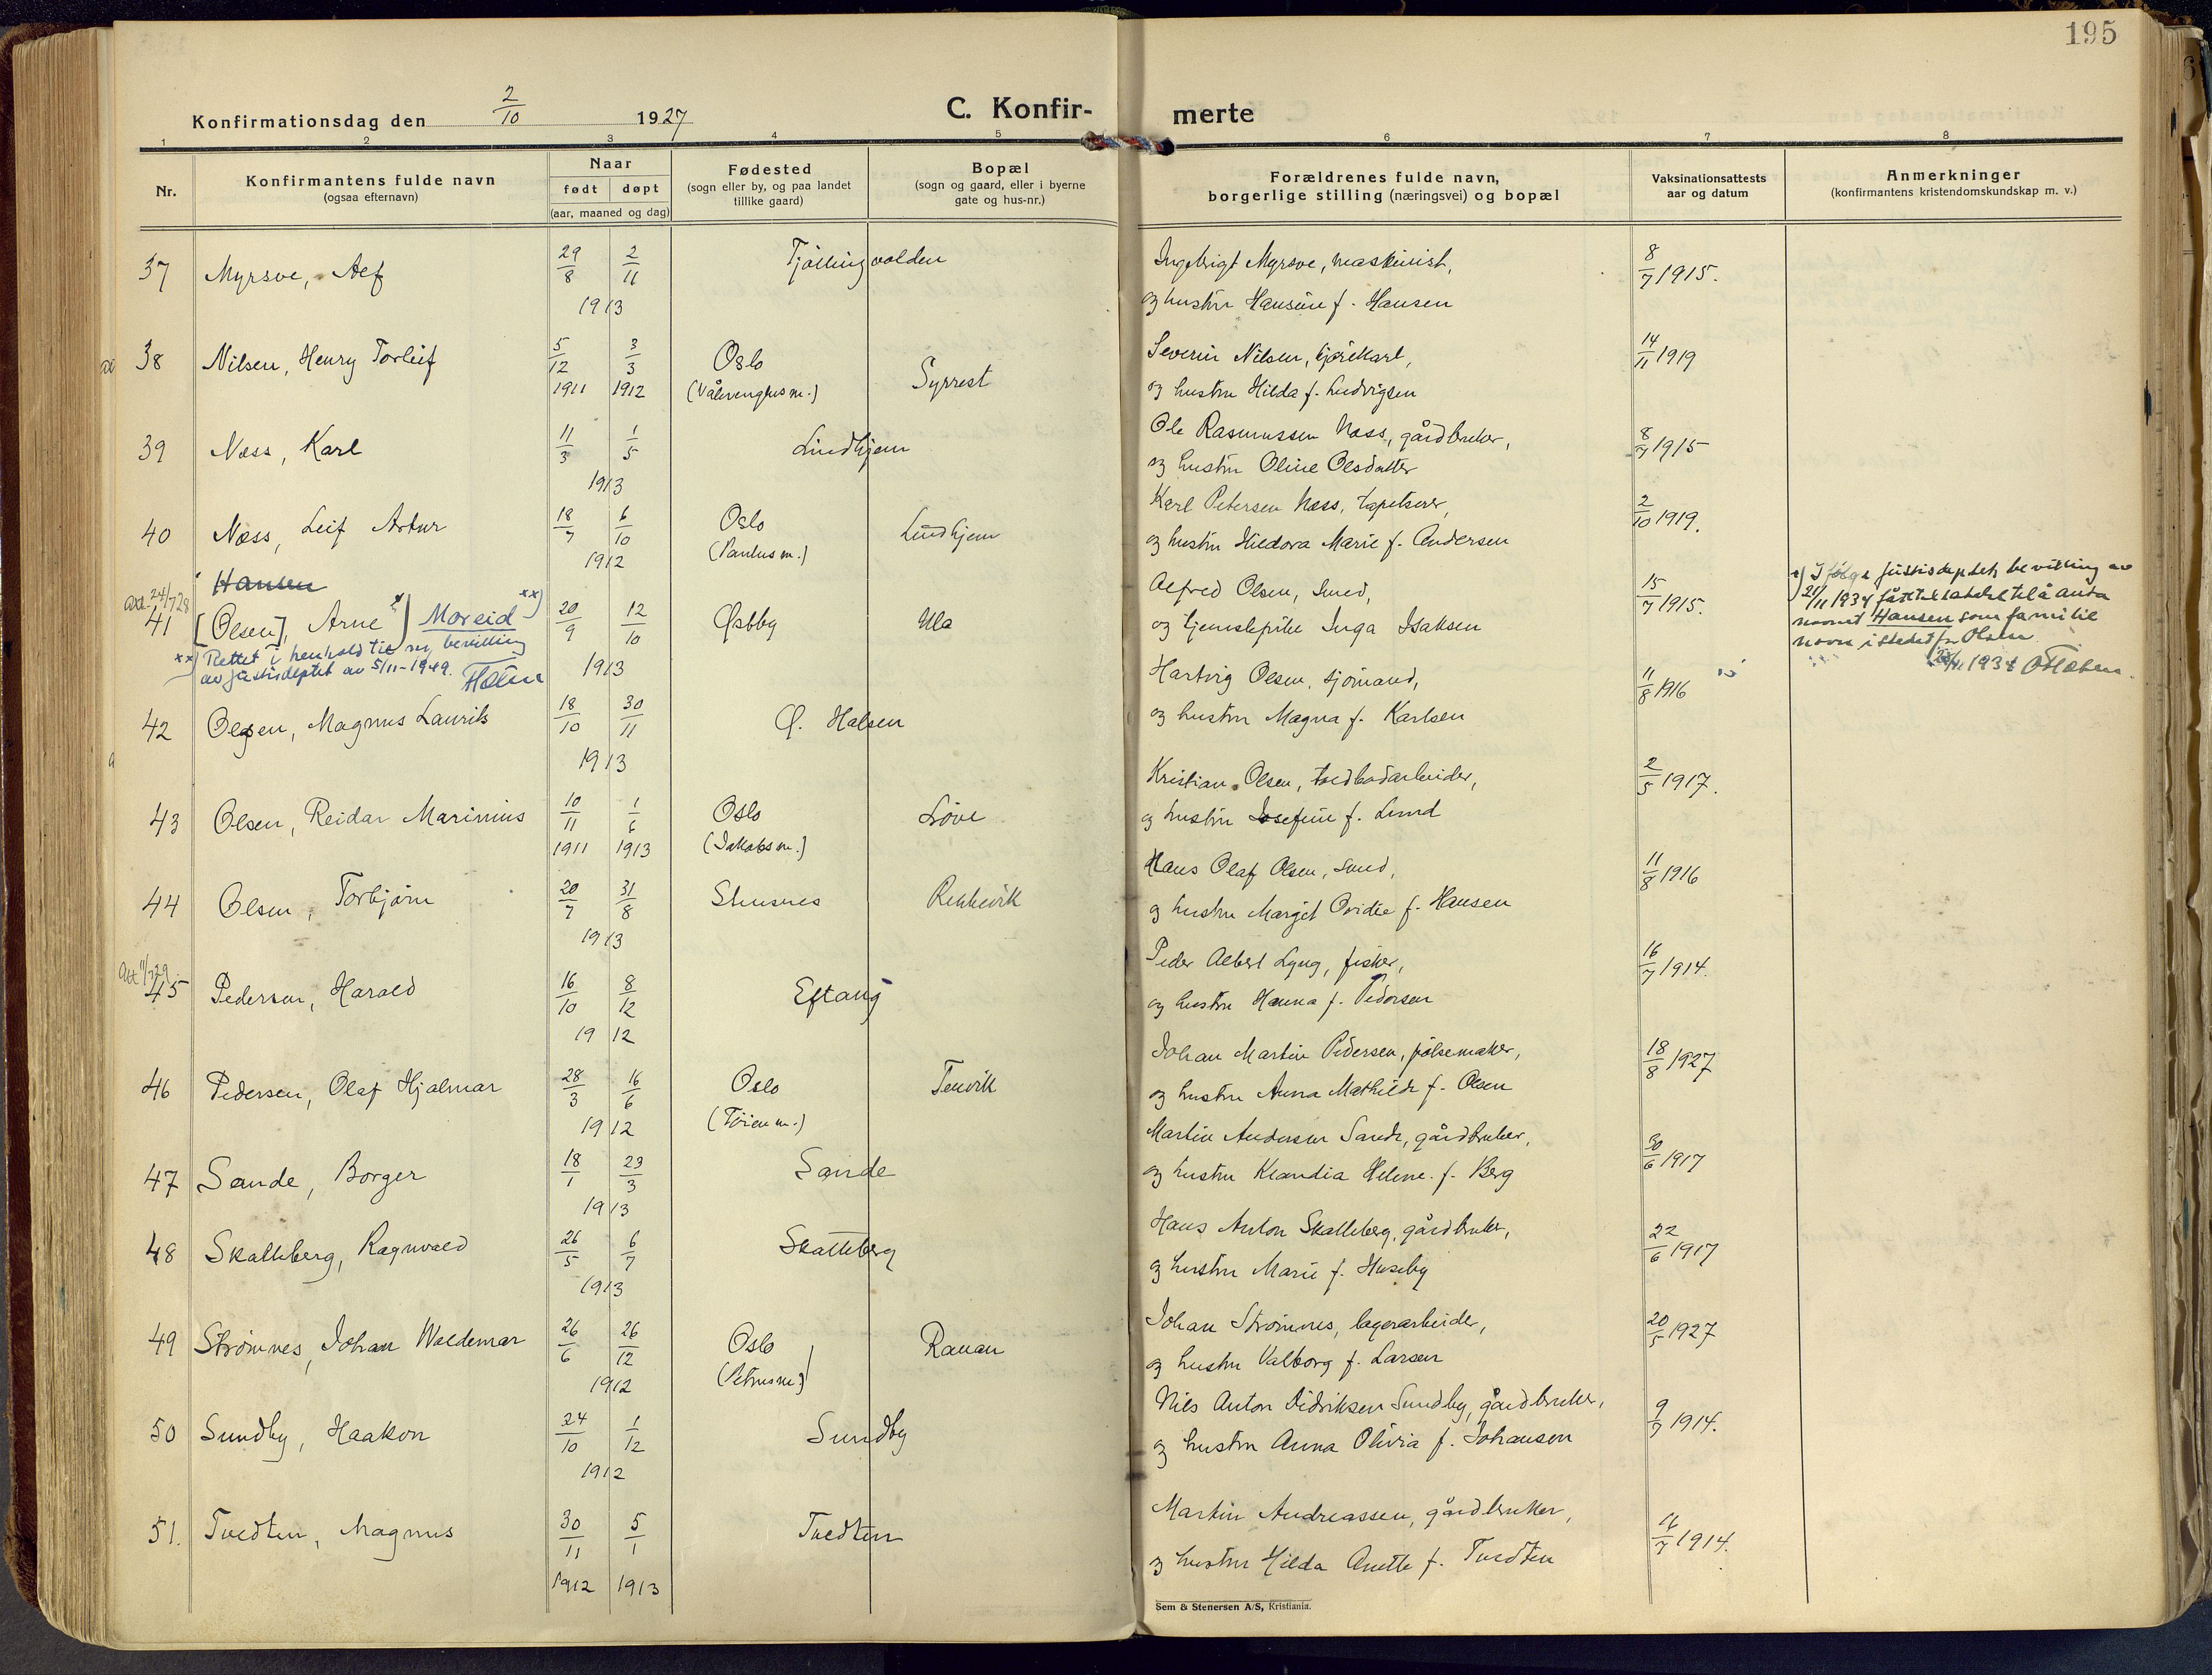 195
Konfirmationsdag den 2/10 1927
C. Konfir- merte
1 2 3 4 5 6 7 8
Nr.
Konfirmantens fulde navn
(ogsaa efternavn)
Naar
født døpt
(aar, maaned og dag)
Fødested
(sogn eller by, og paa landet
tillike gaard)
Bopæl
(sogn og gaard, eller i byerne
gate og hus-nr.)
Forældrenes fulde navn,
borgerlige stilling (næringsvei) og bopæl
Vaksinationsattests
aar og datum
Anmerkninger
(konfirmantens kristendomskundskap m. v.)
37 Myrsve, Alf 29/8 2/11 1913 Tjøllingvolden
Ingebrigt Myrsve, maskinist,
og hustru Hansine f. Hansen
8/7 1915.
38 Nilsen, Henry Torleif 5/12 1911 3/3 1912 Oslo
(Vålerenghus m.) Syrrest
Severin Nilsen, kjørekarl,
og hustru Hilda f. Ludvigsen
14/11 1919
39 Næss, Karl 11/3 1/5 1913 Lindhjem
Ole Rasmussen Næss, gårdbruker,
og hustru Oline Olsdatter
8/7 1915
40 Næss, Leif Artur 18/7 6/10 1912 Oslo
(Paulus m.) Lindhjem
Karl Petersen Næss, tapetserer,
og hustru Hildora Marie f. Andersen
2/10 1919.
Att. 24/7 28
Hansen
41 [Olsen], Arne x) Moreid xx) 20/9 12/10 1913 Østby Ula
xx) Rettet i henhold til ny bevilling
av justisdeptet av 5/11-1949. Holm
Alfred Olsen, smed,
og tjenestepike Inga Isaksen
15/7 1915.
x) Ifølge justisdeptets bevilling av
21/11 1934 fått tillatelse til å anta
navnet Hansen som familie
navn istedet for Olsen.
1934
42 Olsen, Magnus Laurits 18/10 30/11 1913 Ø. Halsen
Hartvig Olsen, sjømand,
og hustru Magna f. Karlsen
11/8 1916
43 Olsen, Reidar Marinius 10/11 1911 1/6 1913 Oslo
(Jakobs m.) Løve
Kristian Olsen, trædbodarbeider,
og hustru Josefine f. Lund
2/5 1917.
44 Olsen, Torbjørn 20/7 31/8 1913 Slusnes Rekkevik
Hans Olaf Olsen, smed,
og hustru Margit Ovidie f. Hansen
11/8 1916
Att 11/7 29
45 Pedersen, Harald 16/10 8/12 1912 Eftang
Peder Albert Lyng, fisker,
og hustru Hanna f. Pedersen
16/7 1914.
46 Pedersen, Olaf Hjalmar 28/3 16/6 1912 Oslo
(Tøien m.) Tenvik
Johan Martin Pedersen, pølsemaker,
og hustru Anna Mathilde f. Olsen
18/8 1927
47 Sande, Borger 18/1 23/3 1913 Sande
Martin Andersen Sande, gårdbruker,
og hustru Klandia Helene f. Berg
30/6 1917
48 Skalleberg, Ragnvald 26/5 6/7 1913 Skalleberg
Hans Anton Skalleberg, gårdbruker,
og hustru Marie f. Huseby
22/6 1917
49 Strømnes, Johan Waldemar 26/6 26/12 1912 Oslo
(Petrus m.) Rauan
Johan Strømnes, lagerarbeider,
og hustru Valborg f. Larsen
20/5 1927
50 Sundby, Haakon 24/10 1/12 1912 Sundby
Nils Anton Didriksen Sundby, gårdbruker,
og hustru Anna Olivia f. Johansen
9/7 1914.
51. Tvedten, Magnus 30/11 1912 5/1 1913 Tvedten
Martin Andreassen, gårdbruker,
og hustru Hilda Anette f. Tvedten
1914.
Sem & Stenersen A/S, Kristiania.